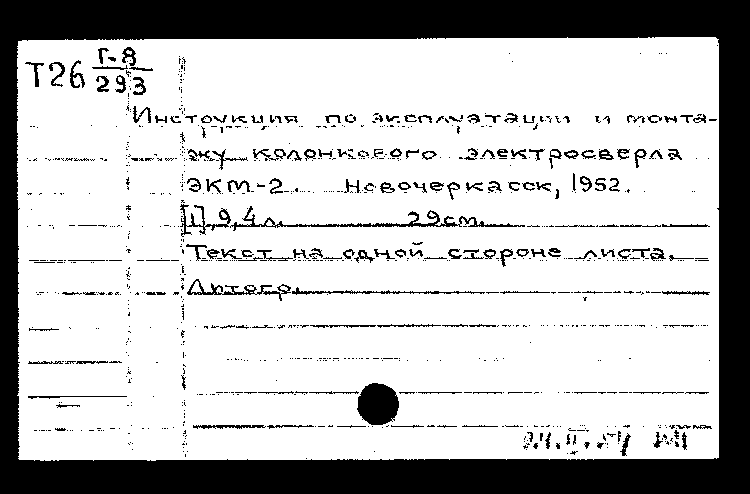 Т26 Г-8
293
Инструкция по эксплуатации и монта-
жу колонкового электросверла
ЭКМ-2. Новочеркасск, 1952.
[1], 9, 4 л. 29см.
Текст на одной стороне листа.
Литогр.
24.II.54